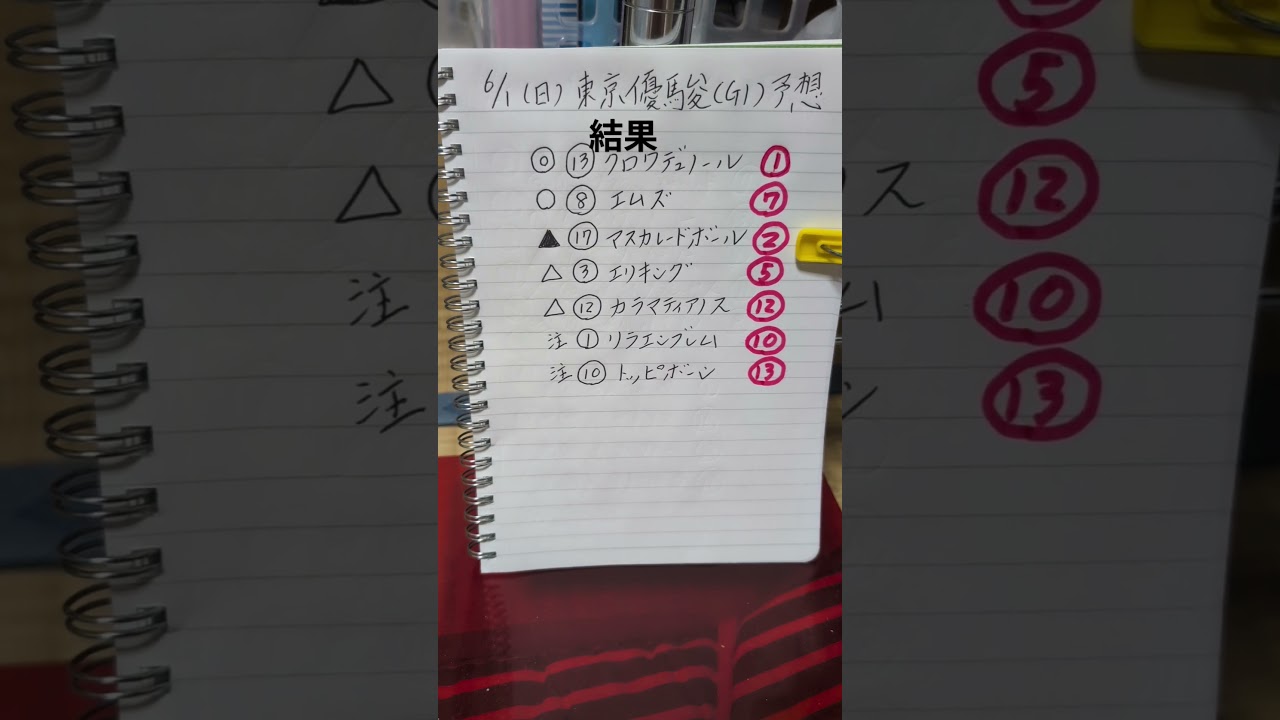 6/1(日)東京優駿(G1)予想
結果
◎ ⑬ クロワデュノール ①
○ ⑧ エムズ ⑦
▲ ⑰ マスカレードボール ②
△ ③ エリキング ⑤
△ ⑫ カラマティアノス ⑫
注 ① リラエンブレム ⑩
注 ⑩ トッピボーン ⑬